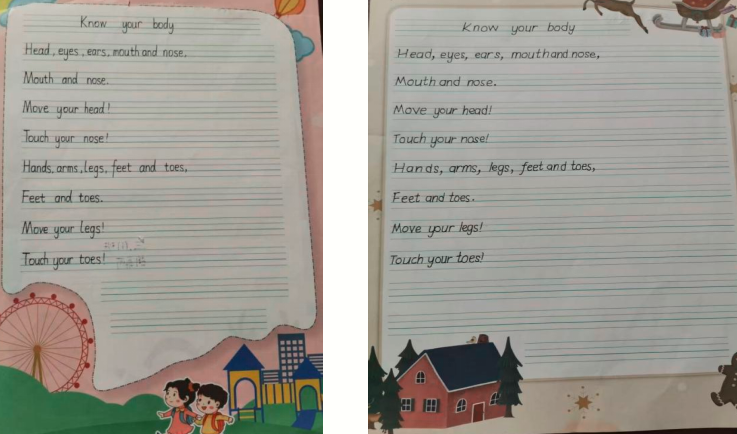 Know your body
Head, eyes, ears, mouth and nose.
Mouth and nose.
Move your head!
Touch your nose!
Hands, arms, legs, feet and toes,
Feet and toes.
Move your legs!
Touch your toes!
Know your body
Head, eyes, ears, mouth and nose,
Mouth and nose.
Move your head!
Touch your nose!
Hands, arms, legs, feet and toes,
Feet and toes.
Move your legs!
Touch your toes!